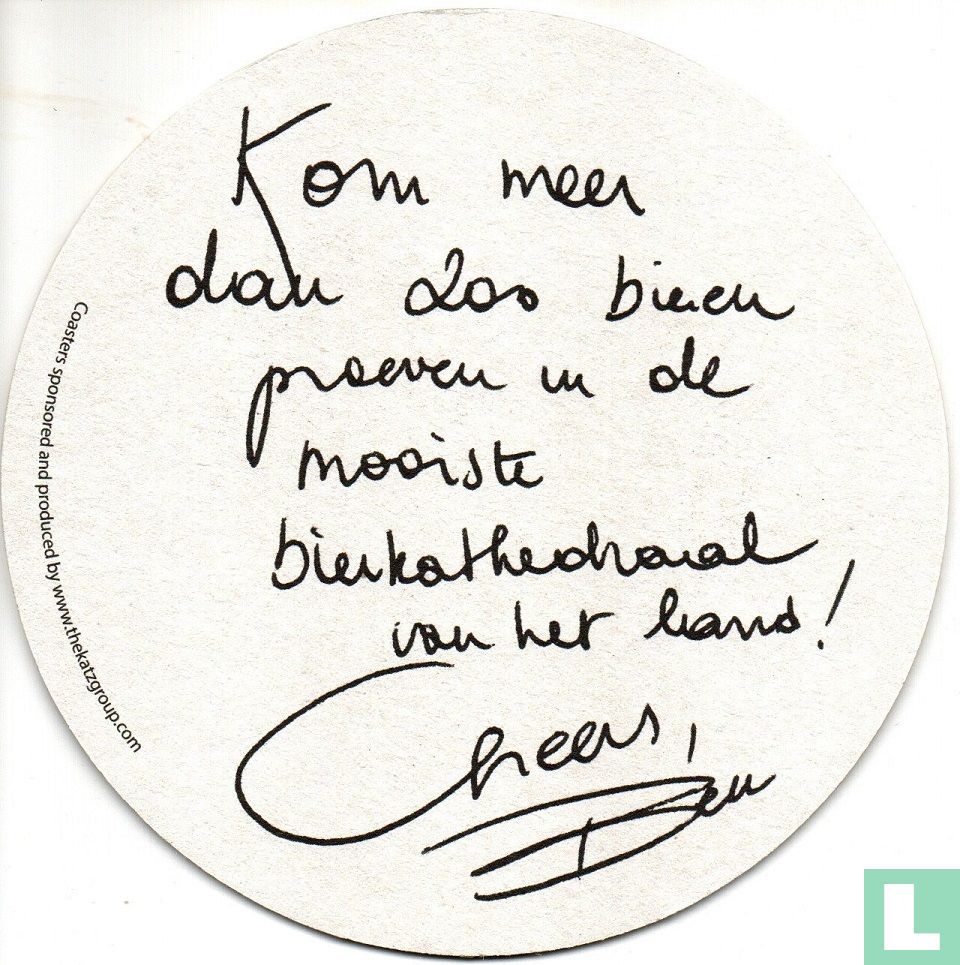 Kom meer
dan 200 bieren
proeven in de
mooiste
bierkathedraal
van het land!
Cheers,
Coasters sponsored and produced by www.thekatzgroup.com
L